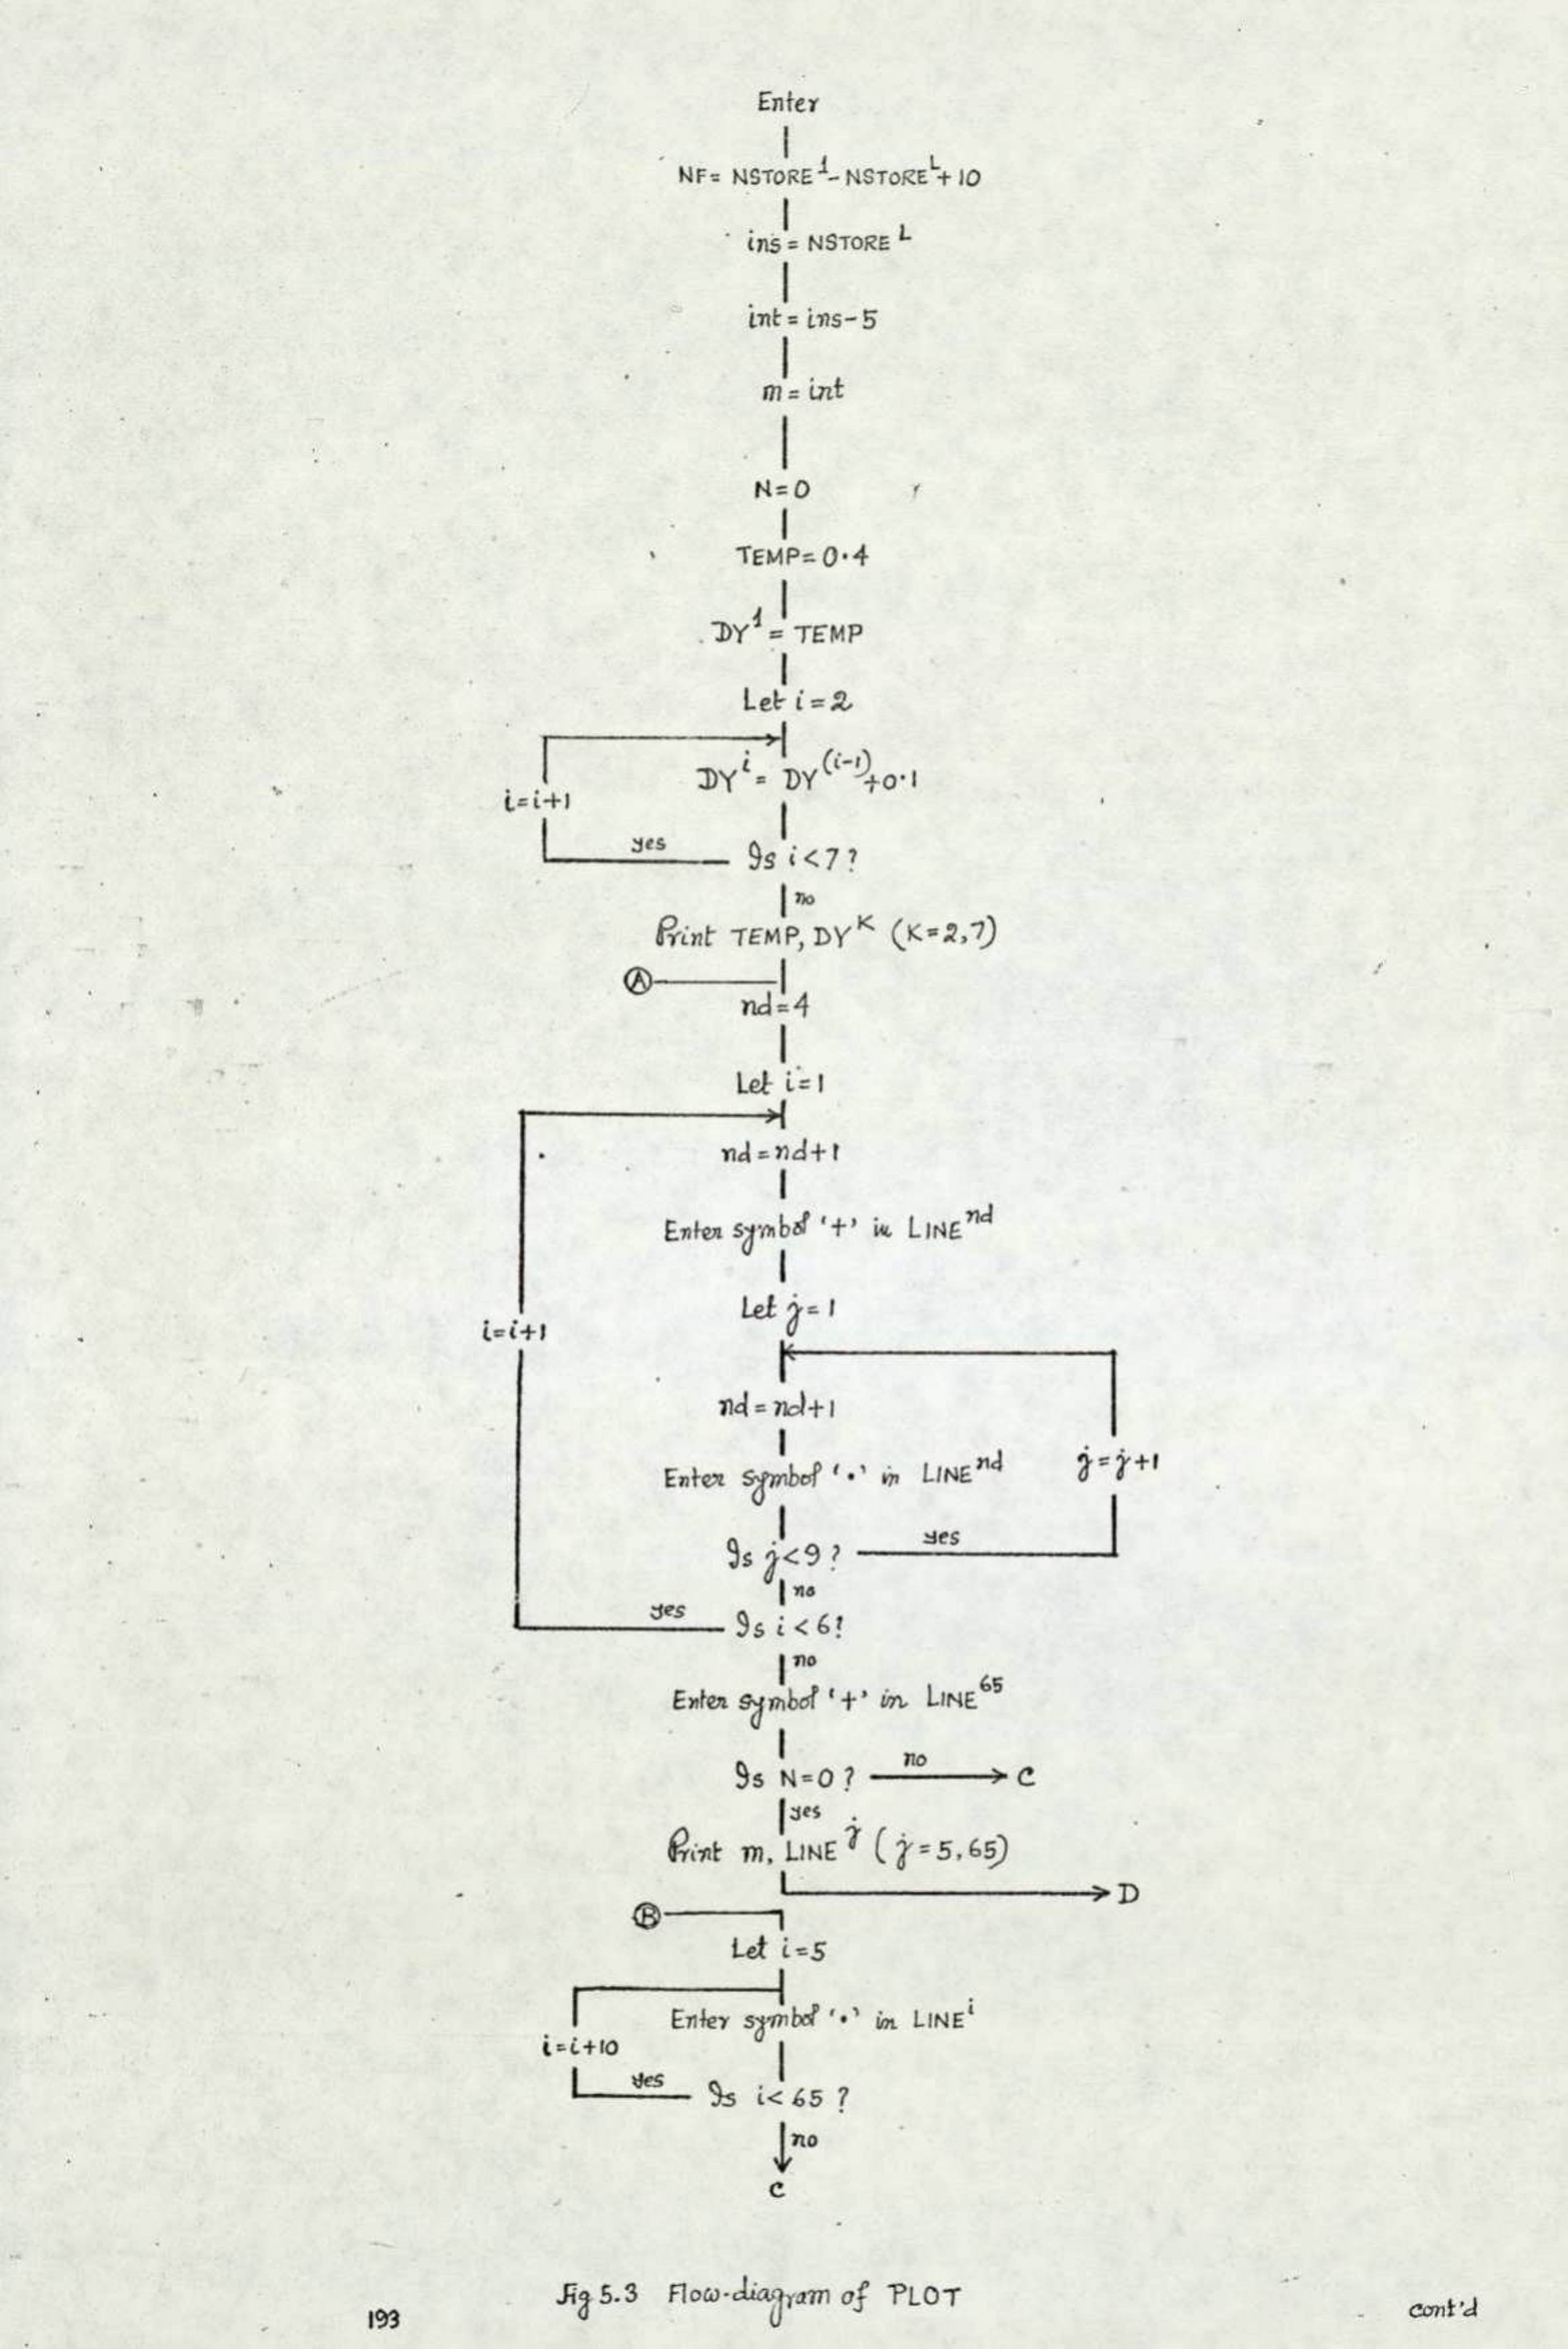 Enter
NF= NSTORE¹- NSTOREᴸ+10
ins = NSTOREᴸ
int = ins-5
m = int
N=0
TEMP=0·4
DY¹ = TEMP
Let i=2
DYⁱ = DY⁽ⁱ⁻¹⁾+0·1
i=i+1
yes
Is i<7?
no
Print TEMP, DYᴷ (K=2,7)
A
nd=4
Let i=1
nd=nd+1
Enter symbol '+' in LINEⁿᵈ
Let j=1
i=i+1
nd=nd+1
Enter symbol '•' in LINEⁿᵈ
j=j+1
Is j<9? yes
no
yes Is i<6?
no
Enter symbol '+' in LINE⁶⁵
Is N=0? no C
yes
Print m, LINEʲ (j=5,65)
D
B
Let i=5
Enter symbol '•' in LINEⁱ
i=i+10
yes Is i<65?
no
C
Fig 5.3 Flow-diagram of PLOT
193
cont'd